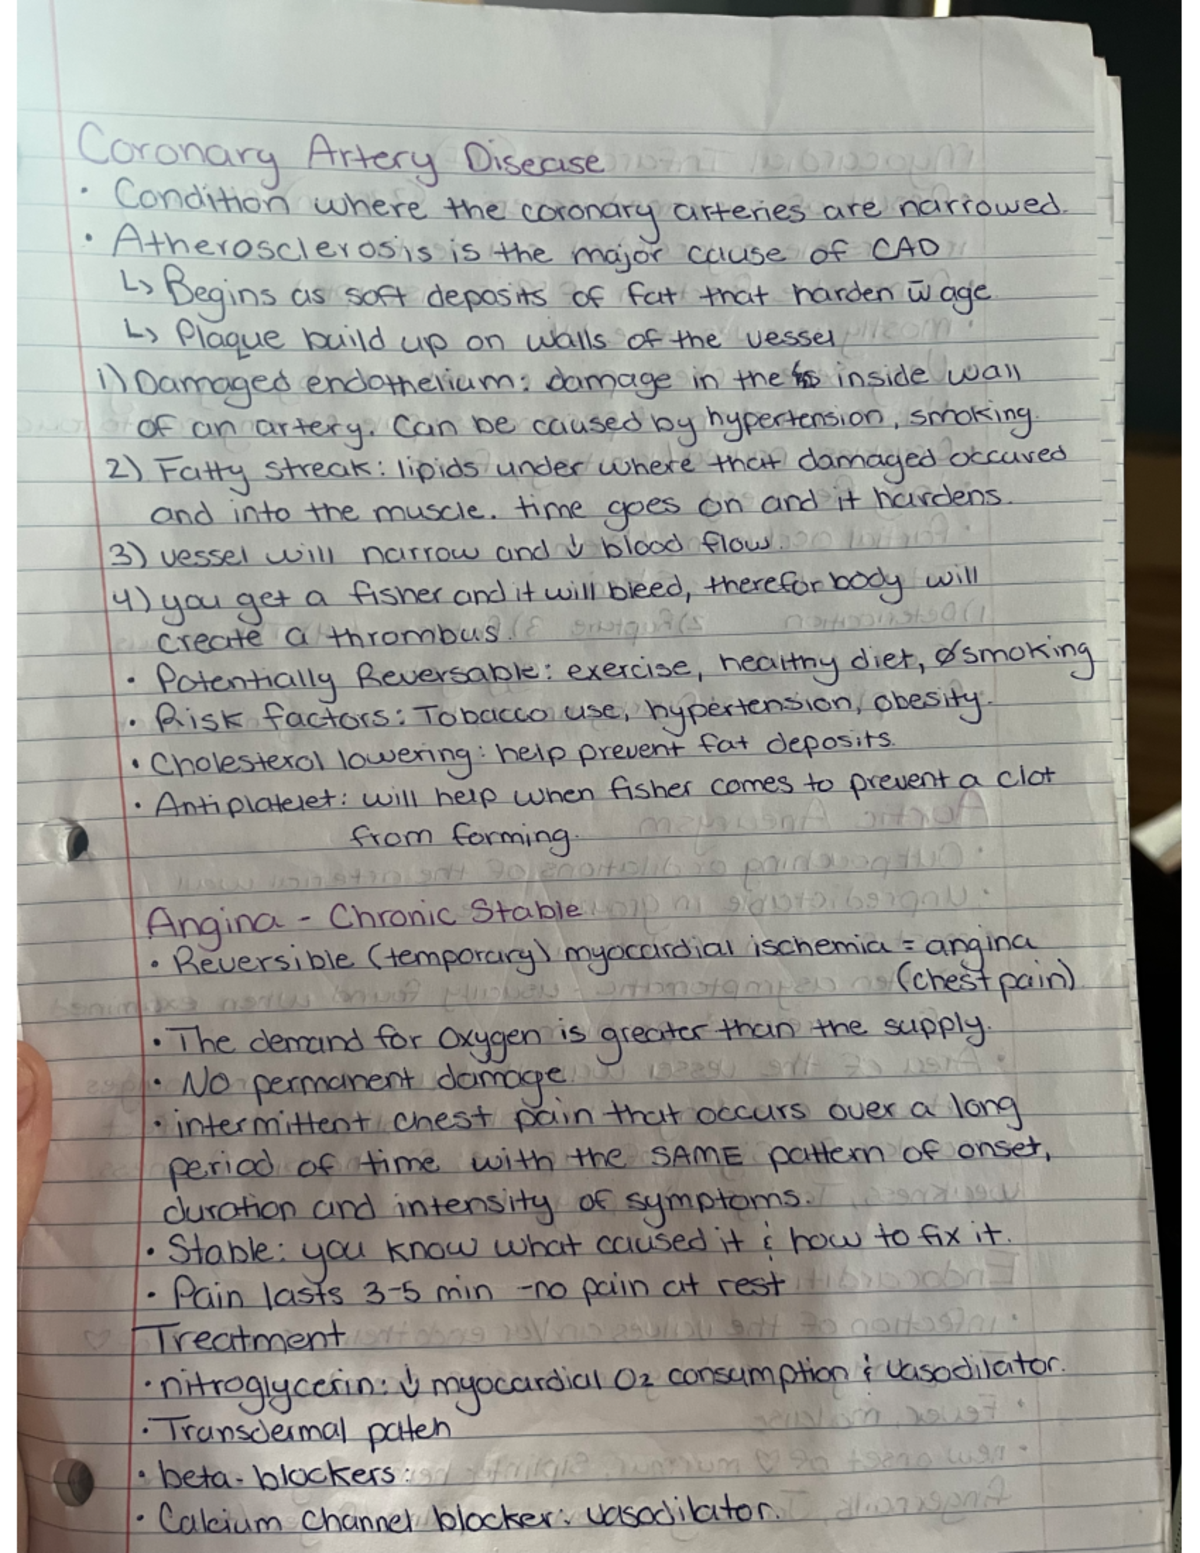 Coronary Artery Disease
• Condition where the coronary arteries are narrowed.
• Atherosclerosis is the major cause of CAD
↳ Begins as soft deposits of fat that harden w̄ age
↳ Plaque build up on walls of the vessel
1) Damaged endothelium: damage in the inside wall
of an artery. Can be caused by hypertension, smoking.
2) Fatty streak: lipids under where that damaged occured
and into the muscle. time goes on and it hardens.
3) vessel will narrow and ↓ blood flow.
4) you get a fisher and it will bleed, therefor body will
create a thrombus.
• Potentially Reversable: exercise, healthy diet, Ø smoking
• Risk factors: Tobacco use, hypertension, obesity.
• Cholesterol lowering: help prevent fat deposits.
• Antiplatelet: will help when fisher comes to prevent a clot
from forming.
Angina - Chronic Stable
• Reversible (temporary) myocardial ischemia = angina
(chest pain)
• The demand for Oxygen is greater than the supply.
• No permanent damage
• intermittent chest pain that occurs over a long
period of time with the SAME pattern of onset,
duration and intensity of symptoms.
• Stable: you know what caused it & how to fix it.
• Pain lasts 3-5 min - no pain at rest
Treatment
• nitroglycerin: ↓ myocardial O2 consumption & vasodilator.
• Transdermal patch
• beta-blockers:
• Calcium channel blocker: vasodilator.